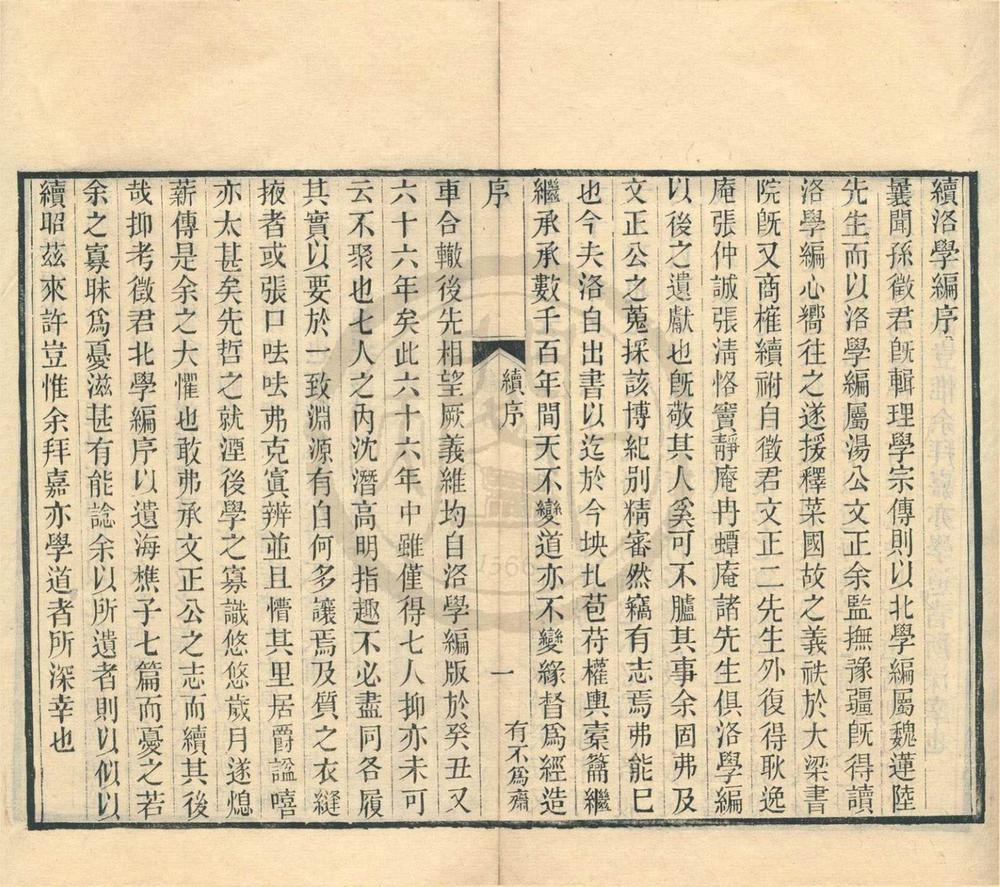 續洛學編序
曩聞孫徵君旣輯理學宗傳則以北學編屬魏蓮陸
先生而以洛學編屬湯公文正余監撫豫疆旣得讀
洛學編心嚮往之遂援釋菜國故之義袟於大梁書
院旣又商榷續祔自徵君文正二先生外復得耿逸
庵張仲誠張淸恪竇靜庵冉蟫庵諸先生俱洛學編
以後之遺獻也旣敬其人奚可不臚其事余固弗及
文正公之蒐採該博紀别精審然竊有志焉弗能已
也今夫洛自出書以迄於今坱圠苞苻權輿橐籥繼
繼承承數千百年間天不變道亦不變緣督爲經造
序
續序
一
有不爲齋
車合轍後先相望厥義維均自洛學編版於癸丑又
六十六年矣此六十六年中雖僅得七人抑亦未可
云不聚也七人之內沈潛高明指趣不必盡同各履
其實以要於一致淵源有自何多讓焉及質之衣縫
掖者或張口呿呿弗克寘辨並且懵其里居爵謚嘻
亦太甚矣先哲之就湮後學之寡識悠悠歲月遂熄
薪傳是余之大懼也敢弗承文正公之志而續其後
哉抑考徵君北學編序以遺海樵子七篇而憂之若
余之寡昧爲憂滋甚有能諗余以所遺者則以似以
續昭茲來許豈惟余拜嘉亦學道者所深幸也
1566